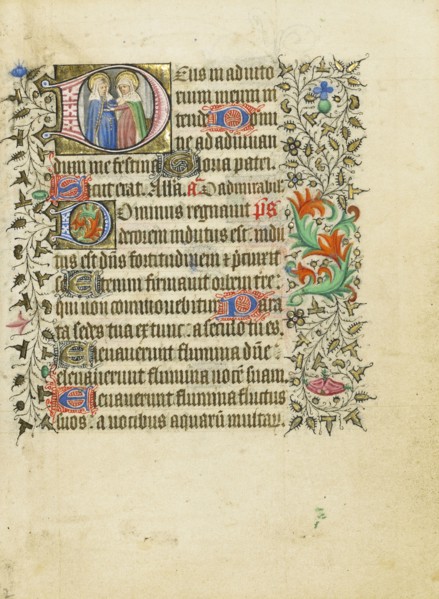 Deus in adiuto
rium meum in
tende Domi
ne ad adiuuan
dum me festina Gloria patri.
Sicut erat. Alla. a O admirabil.
Dominus regnauit ps
decorem indutus est: indu
tus est dns fortitudinem et precinxit
se Etenim firmauit orbem tre:
qui non commouebitur Para
ta sedes tua ex tunc: a seculo tu es.
Eleuauerunt flumina dne:
eleuauerunt flumina uocem suam.
Eleuauerunt flumina fluctus
suos: a uocibus aquarum multar.